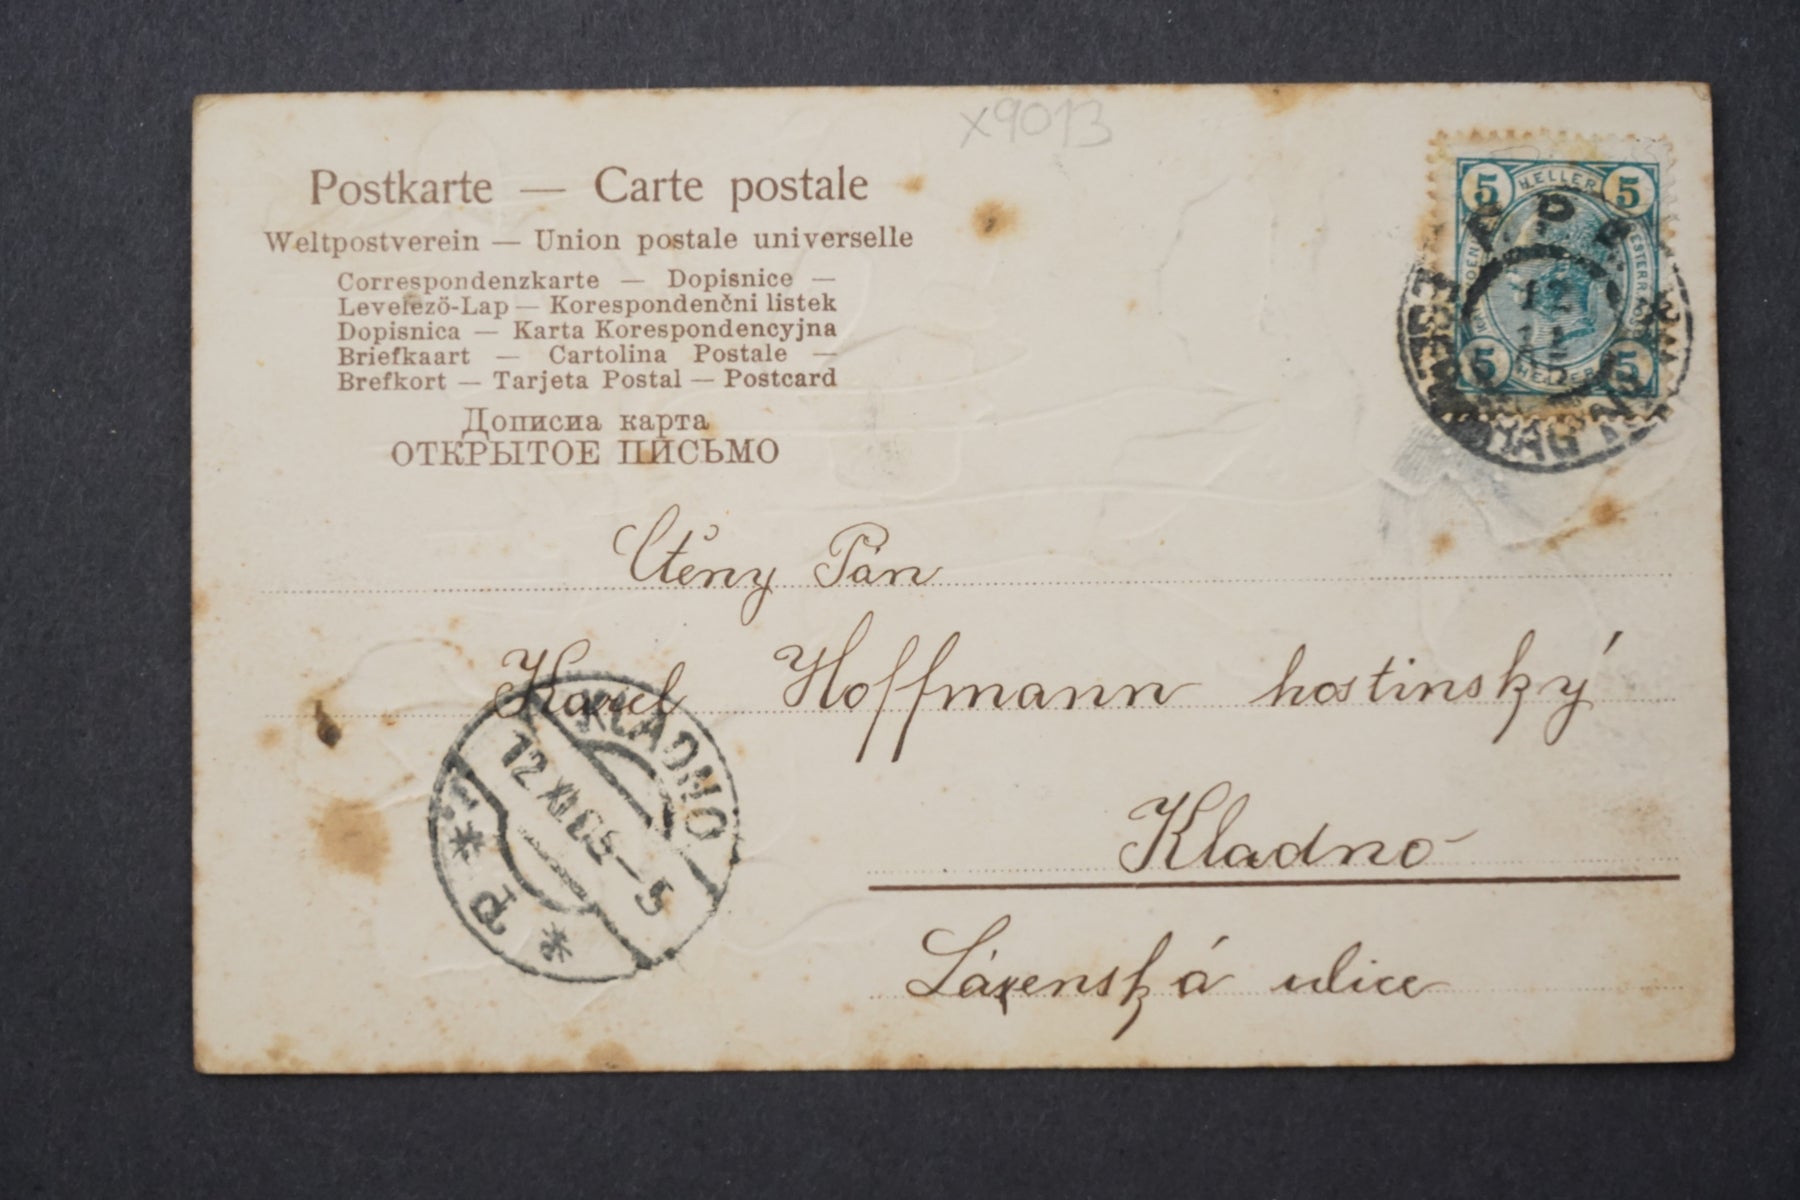 x9013
Postkarte — Carte postale
Weltpostverein — Union postale universelle
Correspondenzkarte — Dopisnice —
Levelező-Lap — Korespondenčni listek
Dopisnica — Karta Korespondencyjna
Briefkaart — Cartolina Postale —
Brefkort — Tarjeta Postal — Postcard
Дописна карта
ОТКРЫТОЕ ПИСЬМО
5 HELLER 5
12
5 HELLER 5
Ctěny Pán
Karel Hoffmann hostinský
KLADNO
12 XI 05—5
Kladno
Lázenská ulice